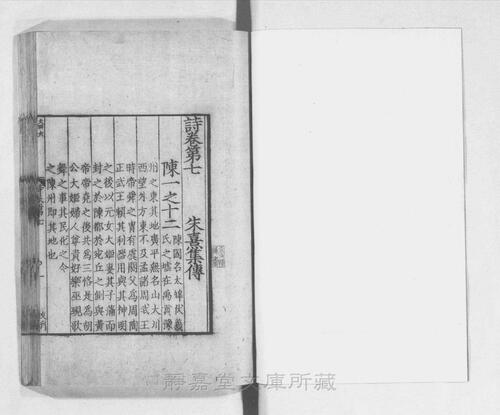 詩卷第七
朱熹集傳
陳一之十二
陳國名太皥伏羲
氏之墟在禹貢豫
州之東其地廣平無名山大川
西望外方東不及孟諸周武王
時帝舜之冑有虞閼父爲周陶
正武王賴其利器用與其神明
之後以元女大姬妻其子滿而
封之於陳都於宛丘之側與黃
帝帝堯之後共爲三恪是爲胡
公大姬婦人尊貴好樂巫覡歌
舞之事其民化之今
之陳州即其地也
靜嘉堂文庫所藏